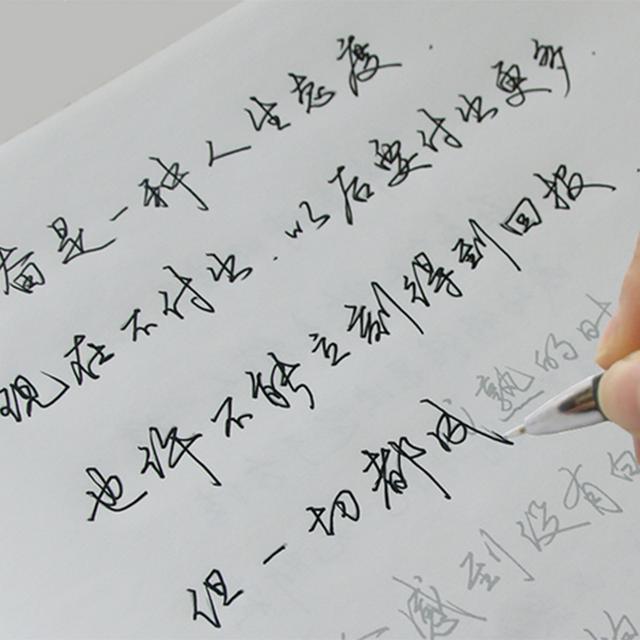 奋是一种人生态度.
现在不付出.以后要付出更多.
也许不能立刻得到回报
但一切都成熟的时
感到没有白